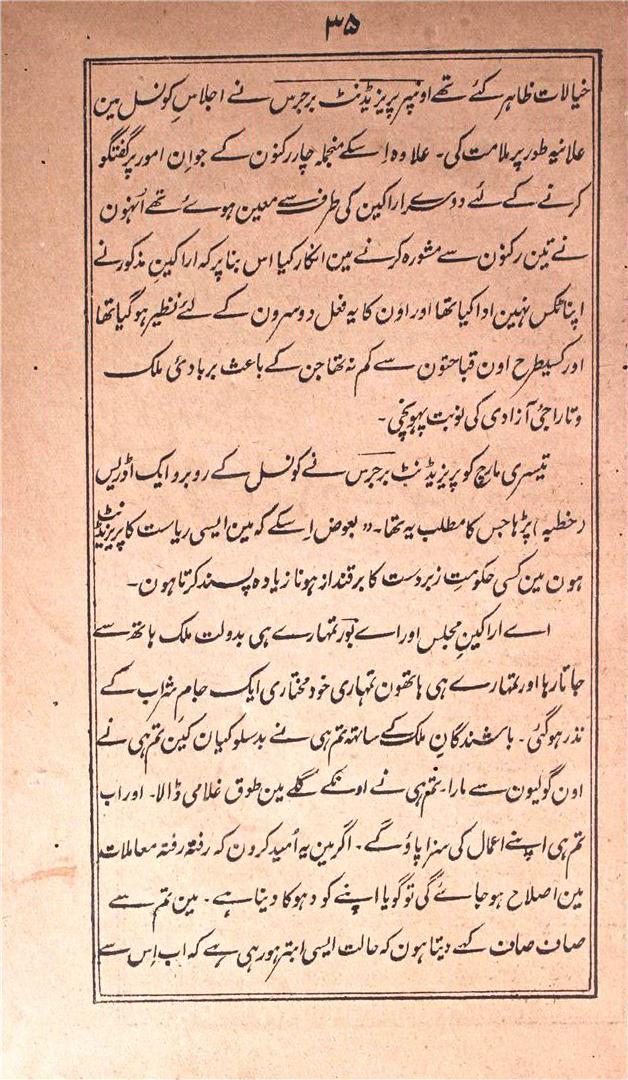 ۳۵
خیالات ظاہر کئے تھے اونپر پریزیڈنٹ برجرس نے اجلاسِ کونسل مین
علانیہ طور پر ملامت کی۔ علاوہ اِسکے منجملہ چار رکنون کے جو اِن امور پر گفتگو
کرنے کے لئے دوسرے اراکین کی طرف سے معین ہوئے تھے اُنہون
نے تین رکنون سے مشورہ کرنے مین انکار کیا اس بنا پر کہ اراکینِ مذکور نے
اپنا ٹکس نہین ادا کیا تھا اور اون کا یہ فعل دوسرون کے لئے نظیر ہو گیا تھا
اور کسیطرح اون قباحتون سے کم نہ تھا جن کے باعث بربادئ ملک
و تاراجئ آزادی کی نوبت پہونچی۔
تیسری مارچ کو پریزیڈنٹ برجرس نے کونسل کے روبرو ایک اڈریس
(خطبہ) پڑہا جس کا مطلب یہ تھا۔ "بعوض اِسکے کہ مین ایسی ریاست کا پریزیڈنٹ
ہون مین کسی حکومتِ زبردست کا برقنداز ہونا زیادہ پسند کرتا ہون۔
اے اراکینِ مجلس اور اے بور تمہارے ہی بدولت ملک ہاتھ سے
جاتا رہا اور تمہارے ہی ہاتھون تمہاری خود مختاری ایک جامِ شراب کے
نذر ہو گئی۔ باشندگانِ ملک کے ساتھ تم ہی نے بدسلوکیان کین تم ہی نے
اون گولیون سے مارا۔ تم ہی نے اونکے گلے مین طوق غلامی ڈالا۔ اور اب
تم ہی اپنے اعمال کی سزا پاؤ گے۔ اگر مین یہ اُمید کرون کہ رفتہ رفتہ معاملات
مین اصلاح ہو جائے گی تو گویا اپنے کو دہوکا دینا ہے۔ مین تم سے
صاف صاف کہے دیتا ہون کہ حالت ایسی ابتر ہو رہی ہے کہ اب اِس سے